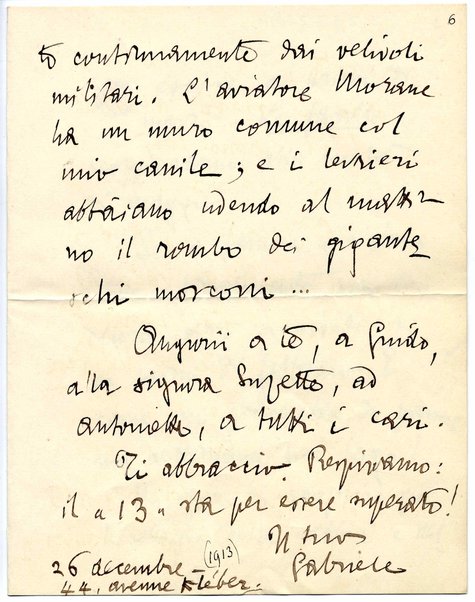 6
to continuamente dai velivoli
militari. L'aviatore Morane
ha un muro comune col
mio canile; e i levrieri
abbaiano udendo al matti-
no il rombo dei gigante
schi mosconi...
Augurii a te, a Guido,
alla signora Suzette, ad
Antonietta, a tutti i cari.
Ti abbraccio. Respiriamo:
il "13" sta per essere superato!
Il tuo
Gabriele
26 decembre - (1913)
44, avenue Kléber.